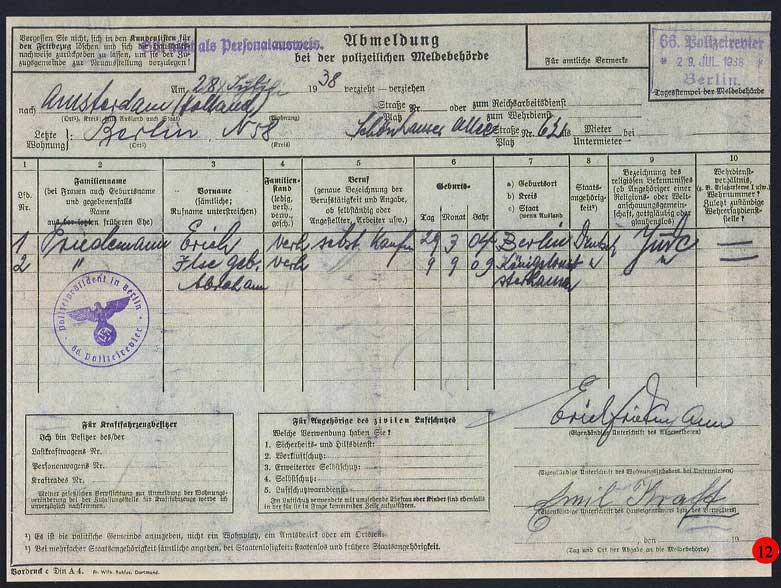 Vergessen Sie nicht, sich in den Kundenlisten für
den Fettbezug löschen und sich die
nachweise zurückgeben zu lassen, um sie der Zu-
zugsgemeinde zur Neuausstellung vorzulegen!
als Personalausweis.
Abmeldung
bei der polizeilichen Meldebehörde
Für amtliche Vermerke
66. Polizeirevier
* 29. JUL. 1938 *
Berlin.
Tagesstempel der Meldebehörde
Am 28. 1938 verzieht – verziehen
nach Amsterdam (Holland) Straße Nr. oder zum Reichsarbeitsdienst
Platz zum Wehrdienst
(Ort), Kreis, falls Ausland auch Staat) (Wohnung)
Letzte Wohnung: Berlin N58 Schönhauser Allee Straße Nr. als Mieter bei
Platz Untermieter
(Ort) (Kreis)
1 2 3 4 5 6 7 8 9 10
Lfd. Nr.
Familienname
(bei Frauen auch Geburtsname
und gegebenenfalls
Name
aus der letzten früheren Ehe)
Vorname
(sämtliche;
Rufname unterstreichen)
Familien-
stand
(ledig,
verh.,
verw.,
gesch.)
Beruf
(genaue Bezeichnung der
Berufstätigkeit und Angabe,
ob selbständig oder
Angestellter, Arbeiter usw.)
Geburts-
Tag Monat Jahr
a) Geburtsort
b) Kreis
c) Staat
(wenn Ausland)
Staats-
angehörig-
keit²)
Bezeichnung des
religiösen Bekenntnisses
(ob Angehöriger einer
Religions- oder Welt-
anschauungsgemein-
schaft, gottgläubig oder
glaubenslos)
Wehrdienst-
verhältnis,
Wehrnummer?
Zuletzt zuständige
Wehrersatzdienst-
stelle?
1 Friedemann Erich verh selbst. Kaufm 29 3 04 Berlin Deutsch Jude
2 " Ilse geb. verh 9 9 09
Abraham
Polizeipräsident in Berlin
66. Polizeirevier
Für Kraftfahrzeugbesitzer
Ich bin Besitzer des/der
Luftkraftwagens Nr.
Personenwagens Nr.
Kraftrades Nr.
Meiner gesetzlichen Verpflichtung zur Anmeldung der Wohnungs-
veränderung bei der Zulassungsstelle für Kraftfahrzeuge werde ich
unverzüglich nachkommen.
Für Angehörige des zivilen Luftschutzes
Welche Verwendung haben Sie?
1. Sicherheits- und Hilfsdienst:
2. Werkluftschutz:
3. Erweiterter Selbstschutz:
4. Selbstschutz:
5. Luftschutzwarndienst:
Im Luftschutz verwendete mit umziehende Ehefrau oder Kinder sind ebenfalls
in der für sie in Frage kommenden Zeile aufzuführen.
Erich Friedemann
(Eigenhändige Unterschrift des Abgemeldeten)
(Eigenhändige Unterschrift des Wohnungsinhabers bei Untermietern)
Emil Kraft
(Eigenhändige Unterschrift des Hauseigentümers bzw. des Verwalters)
, den 19
(Tag und Ort der Abgabe an die Meldebehörde)
¹) Es ist die politische Gemeinde anzugeben, nicht ein Wohnplatz, ein Amtsbezirk oder ein Ortsteil.
²) Bei mehrfacher Staatsangehörigkeit sämtliche angeben, bei Staatenlosigkeit: staatenlos und frühere Staatsangehörigkeit.
Vordruck c Din A 4. Fr. Wilh. Ruhfus, Dortmund.
12